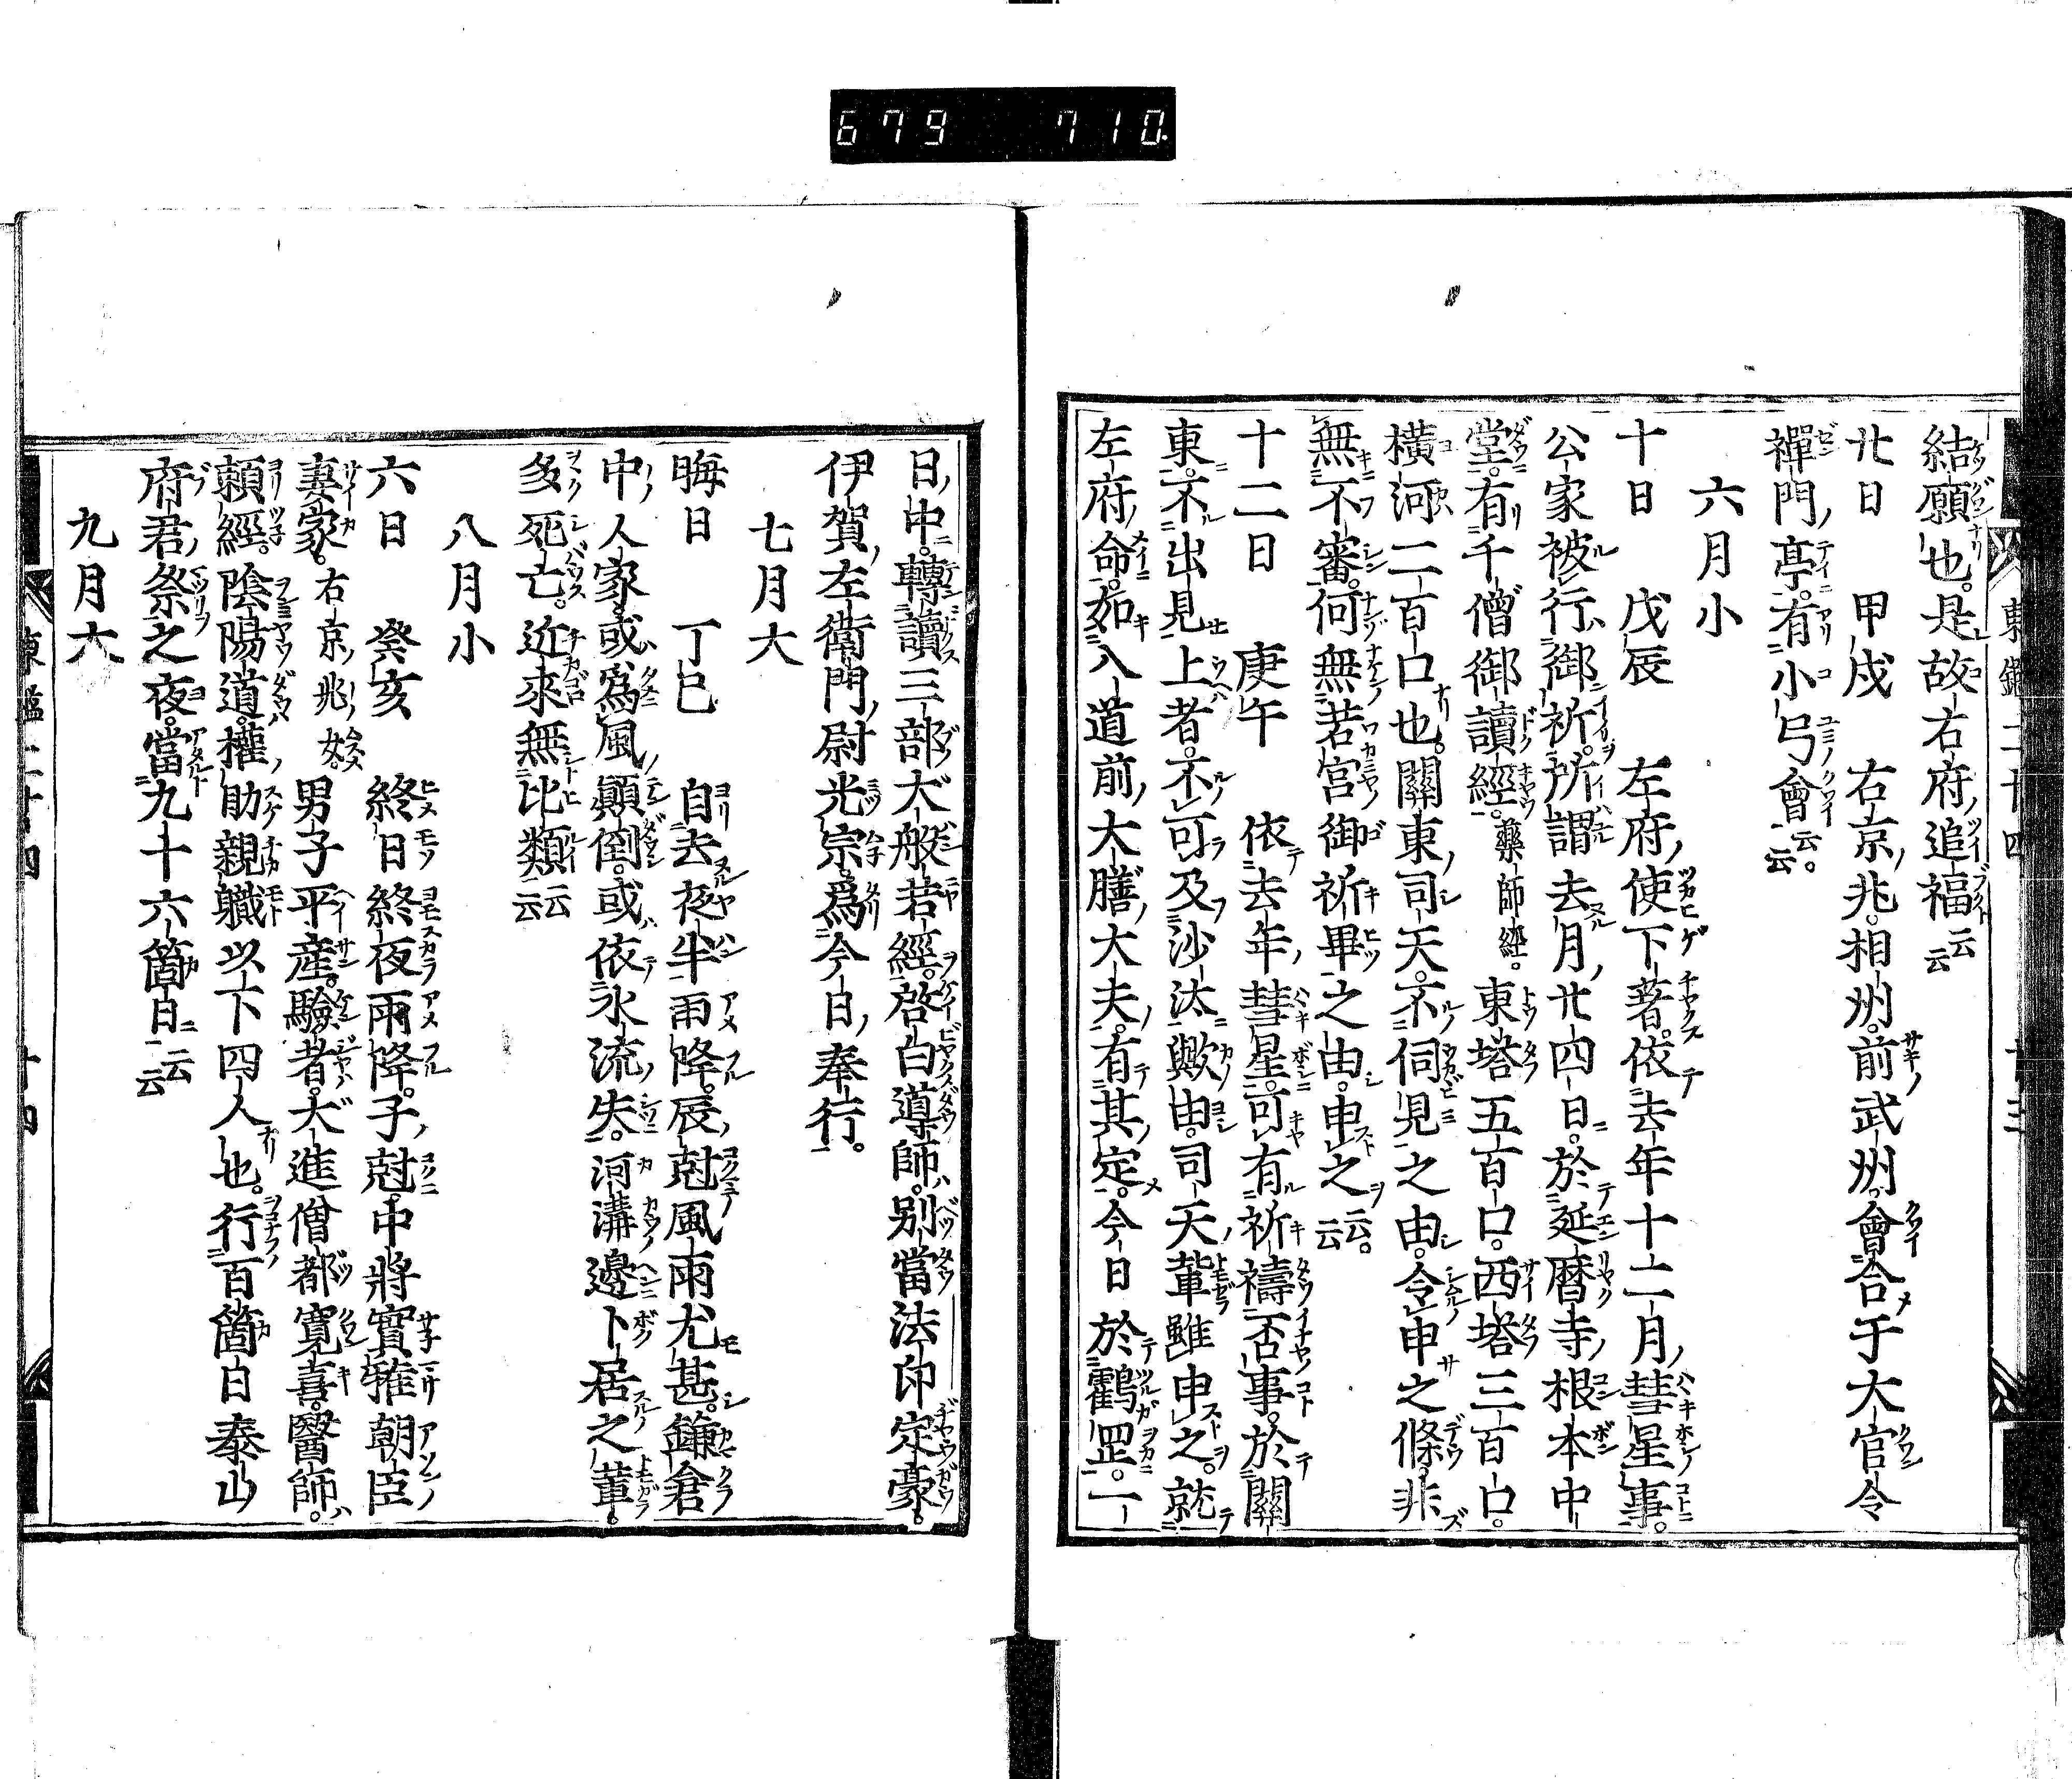 679 710
結願也。是故右府追福云云
廿日 甲戌 右京兆。相州。前武州。會合于大官令
禪門亭。有小弓會云云。
六月小
十日 戊辰 左府使下著。依去年十二月彗星事。
公家被行御祈。所謂去月廿四日。於延暦寺根本中
堂。有千僧御讀經。藥師經。東塔五百口。西塔三百口。
横河二百口也。關東司天。不伺見之由。令申之條。非
無不審。何無若宮御祈畢之由。申之云云。
十二日 庚午 依去年彗星。可有祈禱否事。於關
東。不出見上者。不可及沙汰歟由。司天輩雖申之。就
左府命。如入道前大膳大夫。有其定。今日於鶴岡。一
日中。轉讀三部大般若經。啓白導師。別當法印定豪。
伊賀左衛門尉光宗。爲今日奉行。
七月大
晦日 丁巳 自去夜半雨降。辰尅風雨尤甚。鎌倉
中人家。或爲風顚倒。或依水流失。河溝邊卜居之輩。
多死亡。近來無比類云云
八月小
六日 癸亥 終日終夜雨降。子尅。中將實雅朝臣
妻家。右京兆女。男子平産。驗者。大進僧都寛喜。醫師。
頼經。陰陽道。權助親職以下四人也。行百箇日泰山
府君祭之夜。當九十六箇日云云
九月大